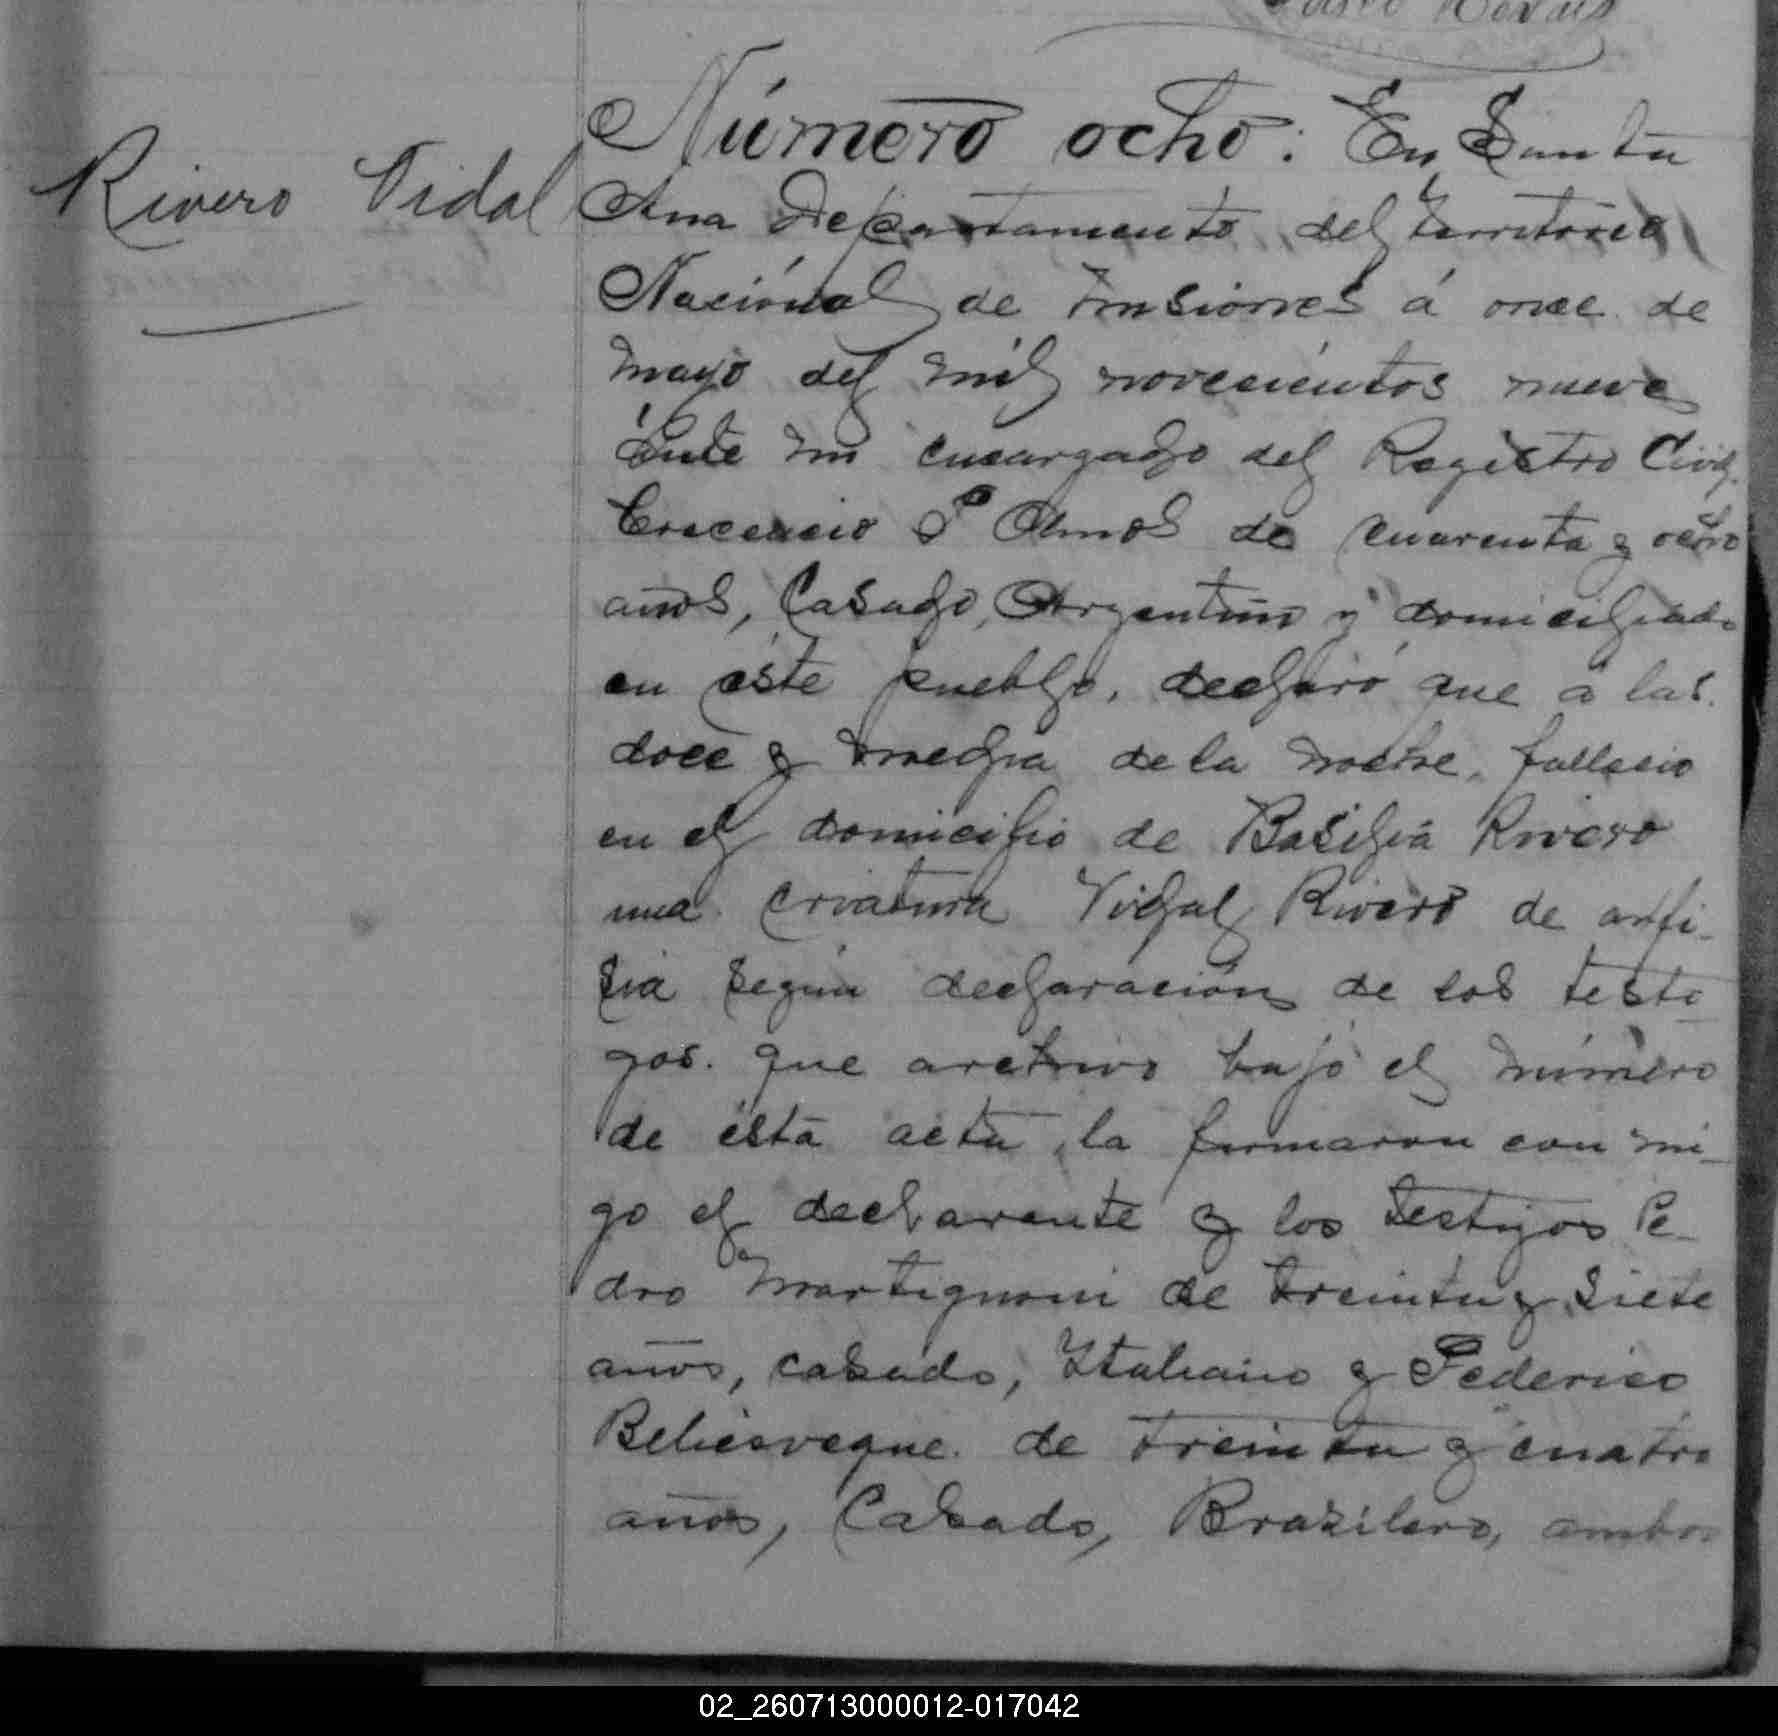 Rivero Vidal
Número ocho: En Santa
Ana Departamento del territorio
Nacional de Misiones á once de
mayo del mil novecientos nueve
ánte mi encargado del Registro Civil
Crecencio P Olmos de cuarenta y ocho
años, Casado, Argentino y domiciliado
en éste pueblo, declaró que á las
doce y media de la noche, fallecio
en el domicilio de Basilia Rivero
una criatura Vidal Rivero de anfi-
sia según declaración de los testi
gos. que archivo bajo el número
de ésta acta, la firmaron con mi-
go el declarante y los testigos Pe-
dro Martignoni de treinta y siete
años, casado, Italiano y Federico
de treinta y cuatro
años, Casado, Brazilero, ambos
02_260713000012-017042